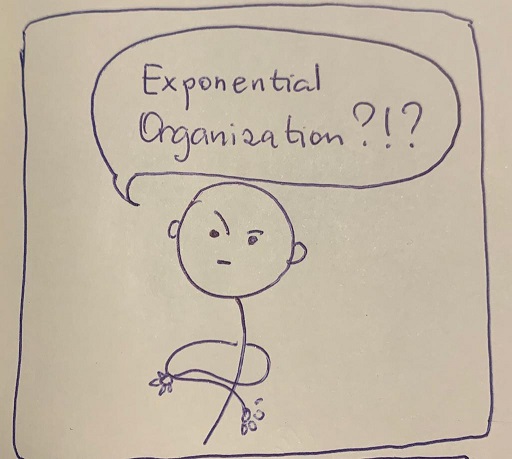 Exponential
Organization ?!?